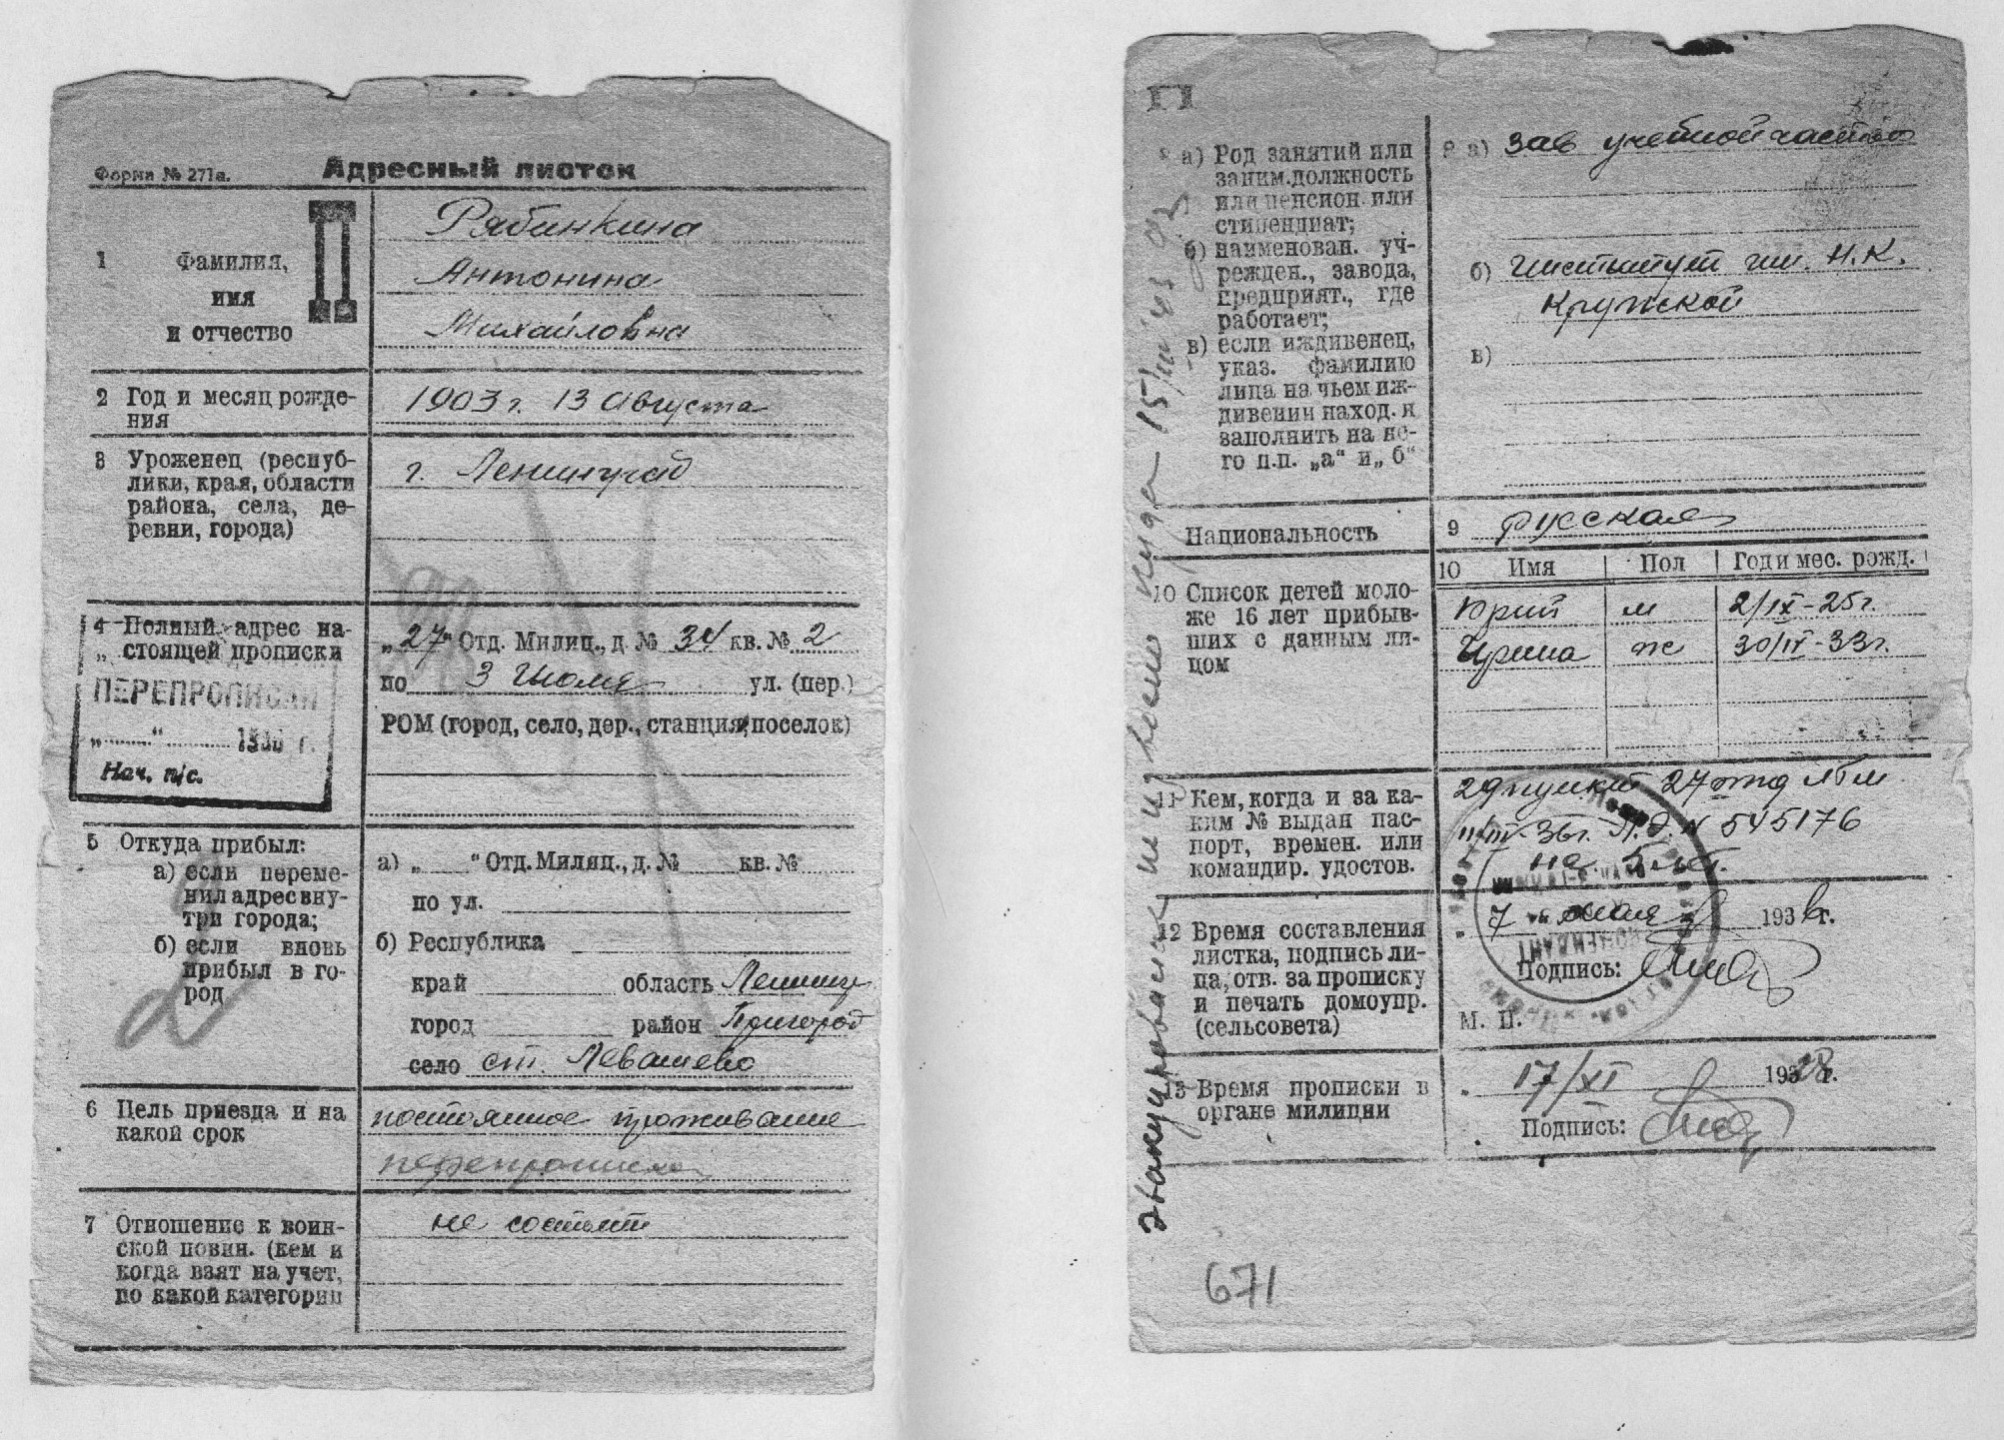 Форма № 271а.
Адресный листок
П
1 Фамилия,
имя
и отчество
Рябинкина
Антонина
Михайловна
2 Год и месяц рожде-
ния
1903 г. 13 Августа
3 Уроженец (респуб-
лики, края, области
района, села, де-
ревни, города)
г. Ленинград
4 Полный адрес на-
стоящей прописки
ПЕРЕПРОПИСАН
„ “ 193 г.
Нач. п/с.
„27“ Отд. Милиц., д. № 34 кв. № 2
по 3 Июля ул. (пер.)
РОМ (город, село, дер., станция, поселок)
5 Откуда прибыл:
а) если переме-
нил адрес вну-
три города;
б) если вновь
прибыл в го-
род
2
а) „ “ Отд. Милиц., д. № кв. №
по ул.
б) Республика
край область Ленингр
город район Пригород
село ст. Левашево
6 Цель приезда и на
какой срок
постоянное проживание
перепрописка
7 Отношение к воин-
ской повин. (кем и
когда взят на учет,
по какой категории
не состоит
П
8 а) Род занятий или
заним. должность
или пенсион. или
стипендиат;
б) наименован. уч-
режден., завода,
предприят., где
работает;
в) если иждивенец,
указ. фамилию
лица на чьем иж-
дивении наход. и
заполнить на не-
го п.п. „а“ и „б“
8 а) Зав учебной частью
б) Институт им. Н.К.
Крупской
в)
Национальность
9 русская
10 Список детей моло-
же 16 лет прибыв-
ших с данным ли-
цом
10 Имя Пол Год и мес. рожд.
Юрий м 2/IX-25г.
Ирина ж 30/IV-33г.
11 Кем, когда и за ка-
ким № выдан пас-
порт, времен. или
командир. удостов.
29 пункт 27 отд ЛГМ
11/III-36г. Л.Д. № 545176
на 5 лет.
12 Время составления
листка, подпись ли-
ца, отв. за прописку
и печать домоупр.
(сельсовета)
7 июля 1936 г.
КОМЕНДАНТ
Подпись:
М. П.
13 Время прописки в
органе милиции
17/XI 1938 г.
Подпись:
эвакуирован неизвестно куда 15/III 43
671